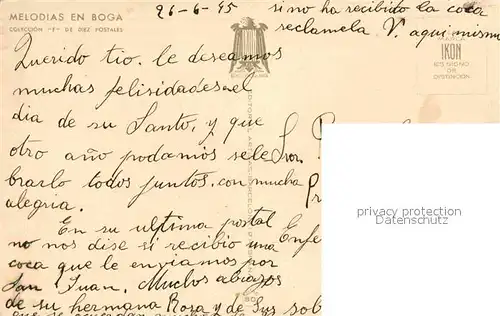 MELODIAS EN BOGA
COLECCIÓN "F" DE DIEZ POSTALES
26-6-45
si no ha recibido la coca
reclamela V. aqui mismo
IKON
ES SIGNO
DE
DISTINCIÓN
Querido tio. le deseamos
muchas felisidades el
dia de su Santo, y que
otro año podamos sele
brarlo todos juntos, con mucha
alegria.
En su ultima postal
no nos dise si recibio una
coca que le enviamos por
San Juan. Muchos abrazos
de su hermana Rosa y de Sus sob
Snr. P
Pr
Enfe
privacy protection
Datenschutz